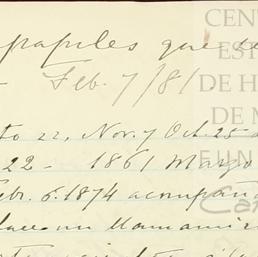 papeles que se
- Feb. 7/81
to 22, Nov. 7 Oct. 25
22 - 1861 Marzo
Feb. 6. 1874 acompaña
hace un llamami
CEN
EST
DE H
DE M
FUN
Ca